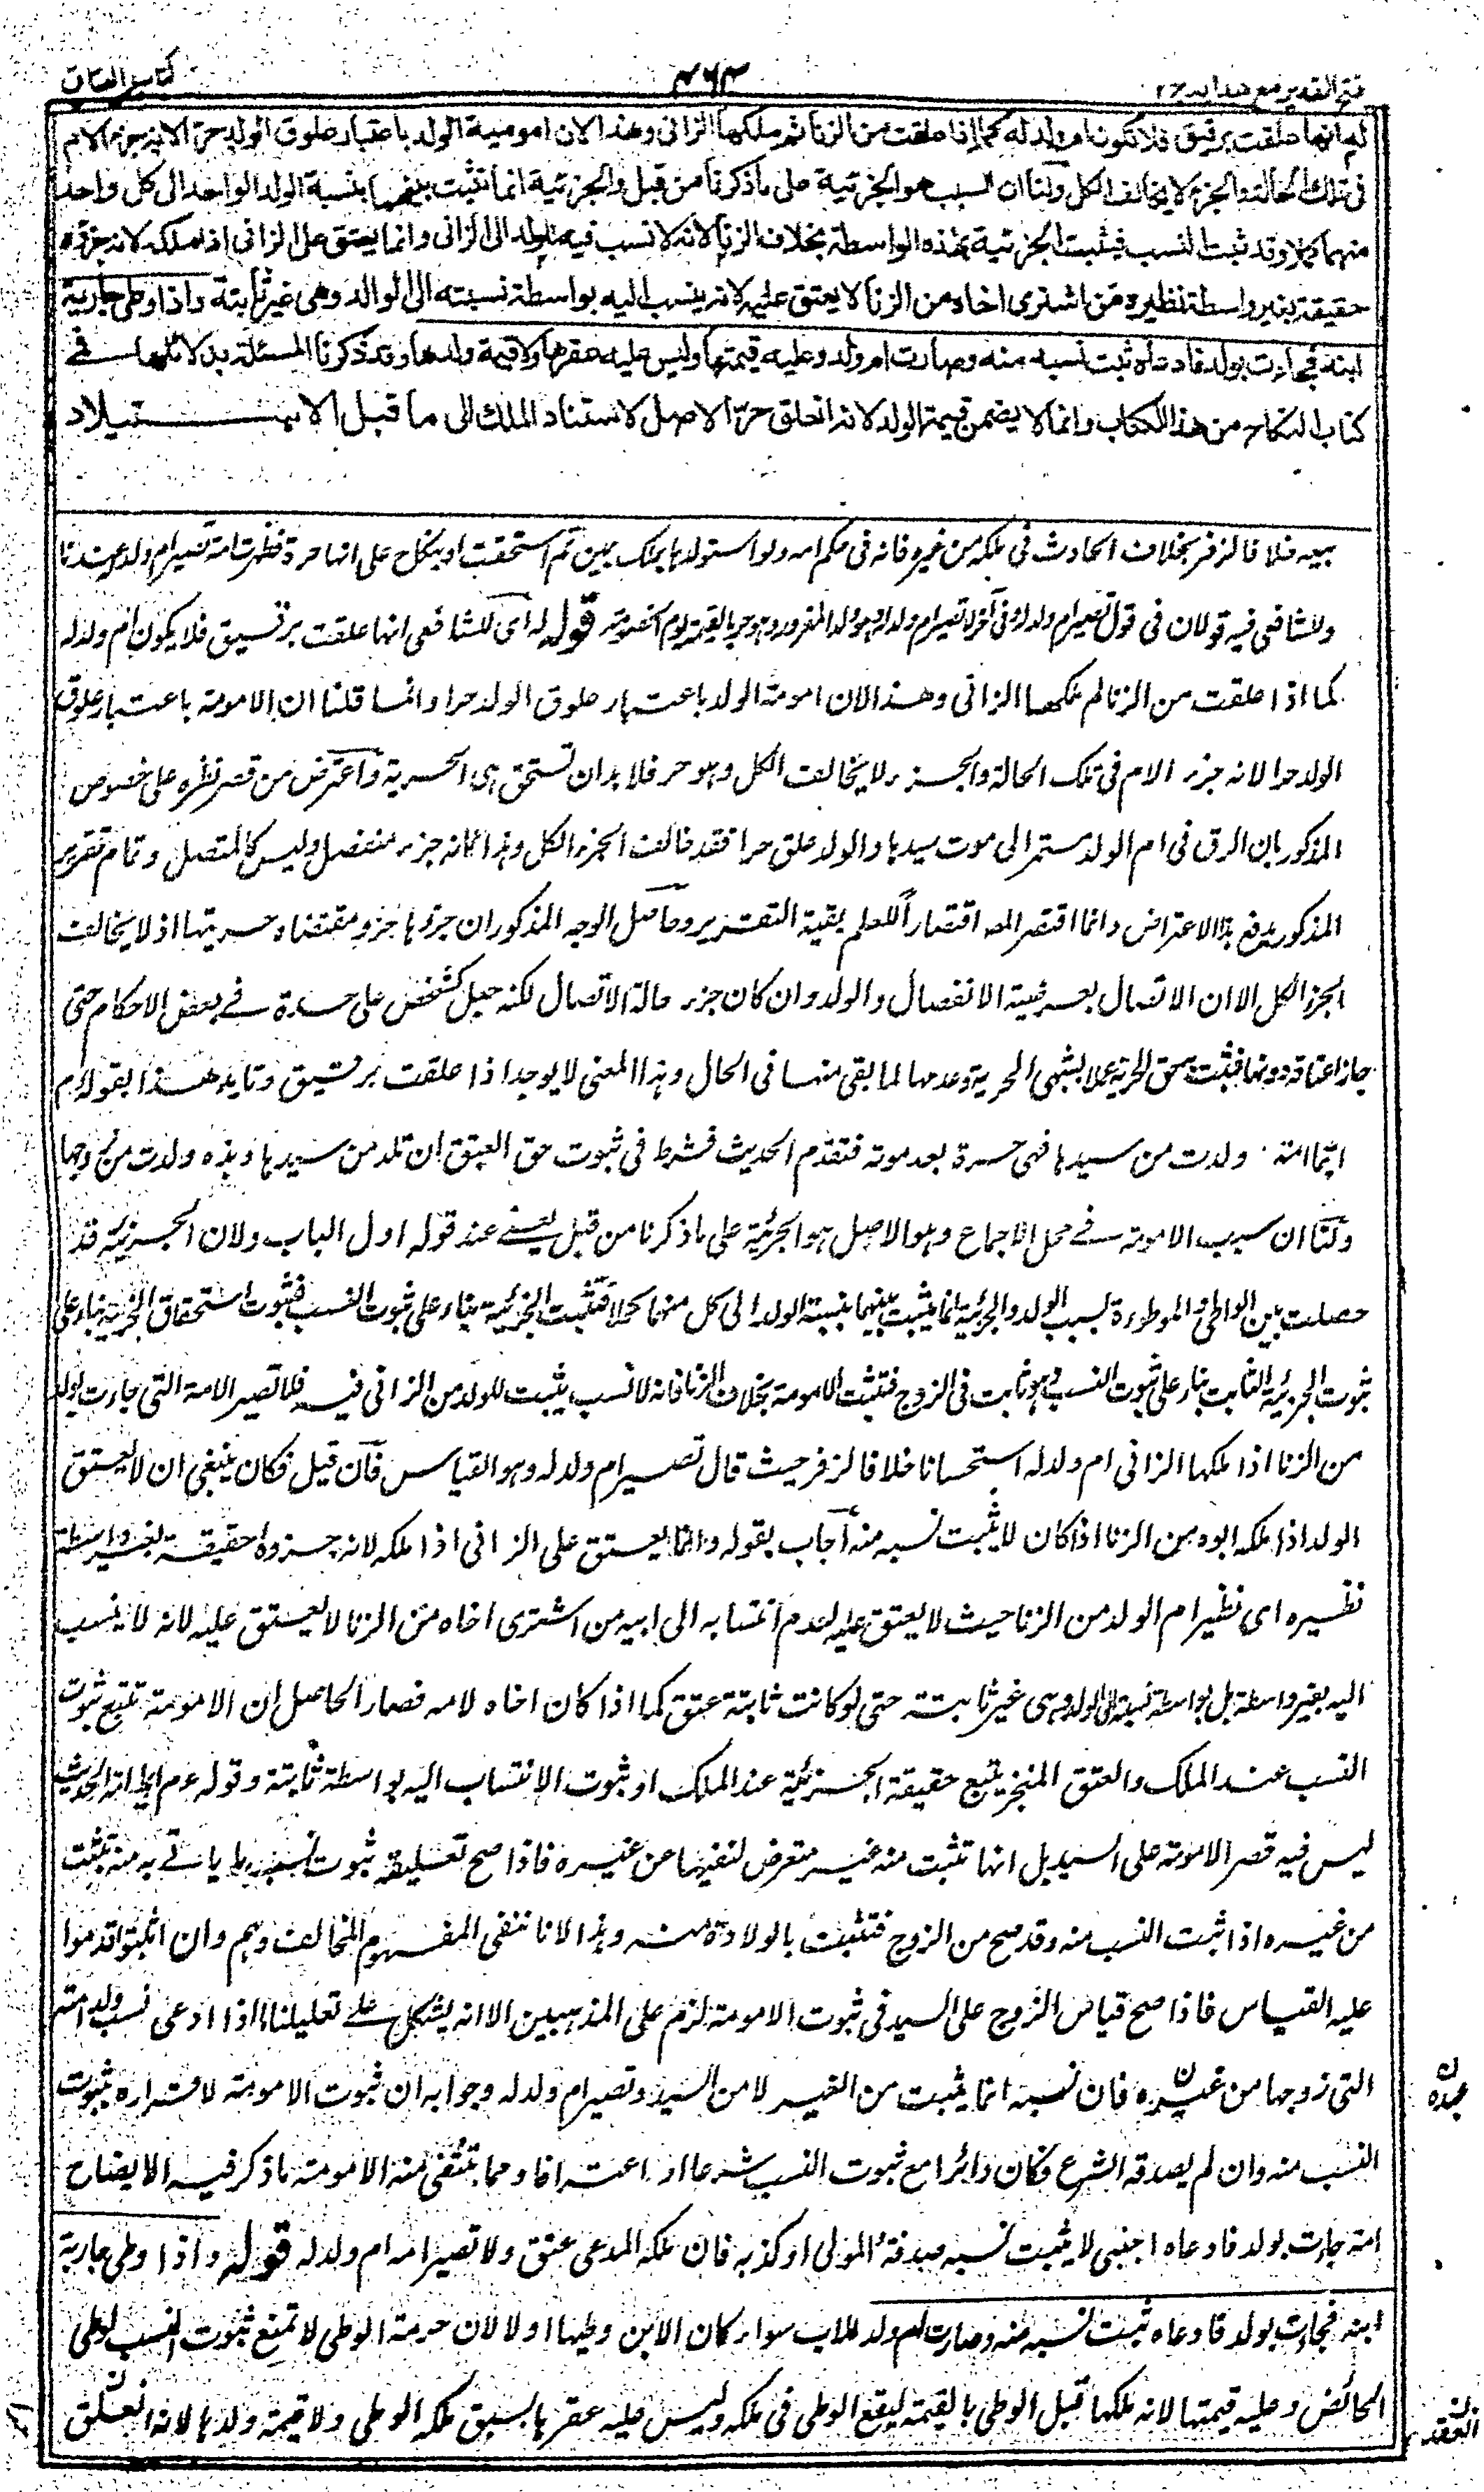 فتح القدير مع هدايه ج٢
٤٦٣
كتاب العتاق
له انها علقت برقيق فلا تكون ام ولد له كما اذا علقت من الزنا ثم ملكها الزانى وهذا لان امومية الولد باعتبار علوق الولد حرا لانه جزء الام
فى تلك الحالة والجزء لا يخالف الكل ولنا ان السبب هو الجزئية على ما ذكرنا من قبل والجزئية انما تثبت بينهما بنسبة الولد الواحد الى كل واحد
منهما كملا وقد ثبت النسب فيثبت الجزئية بهذه الواسطة بخلاف الزنا لانه لا نسب فيه للولد الى الزانى وانما يعتق على الزانى اذا ملكه لانه جزؤه
حقيقة بغير واسطة نظيره من اشترى اخاه من الزنا لا يعتق عليه لانه ينسب اليه بواسطة نسبته الى الوالد وهى غير ثابتة واذا وطى جارية
ابنه فجاءت بولد فادعاه ثبت نسبه منه وصارت ام ولد له وعليه قيمتها وليس عليه عقرها ولا قيمة ولدها وقد ذكرنا المسئلة بدلائلها فى
كتاب النكاح من هذا الكتاب وانما لا يضمن قيمة الولد لانه انعلق حر الاصل لاستناد الملك الى ما قبل الاستيلاد
بيعه خلافا لزفر بخلاف الحادث فى ملكه من غيره فانه فى حكم امه ولو استولدها بملك يمين ثم استحقت او بنكاح على انها حرة فظهرت امة تصير ام ولد عندنا
وللشافعى فيه قولان فى قول تصير ام ولد له وفى آخر لا تصير ام ولد له وهو ولد المغرور وهو حر بالقيمة يوم الخصومة قوله له اى للشافعى انها علقت برقيق فلا يكون ام ولد له
كما اذا علقت من الزنا ثم ملكها الزانى وهذا لان امومة الولد باعتبار علوق الولد حرا وانما قلنا ان الامومة باعتبار علوق
الولد حرا لانه جزء الام فى تلك الحالة والجزء لا يخالف الكل وهو حر فلا بد ان تستحق هى الحرية واعترض من قصر نظره على خصوص
المذكور بان الرق فى ام الولد مستمر الى موت سيدها والولد علق حرا فقد خالف الجزء الكل وهذا لانه جزء منفصل وليس كالمتصل وتمام تقرير
المذكور يدفع هذا الاعتراض وانما اقتصر المص اقتصارا للعلم ببقية التقرير وحاصل الوجه المذكور ان جزؤها جزؤ مقتضاه حريتها اذ لا يخالف
الجزء الكل الا ان الاتصال بعرضية الانفصال والولد وان كان جزء حالة الاتصال لكنه جعل كشخص على حدة فى بعض الاحكام حتى
جاز اعتاقه دونها فيثبت حق الحرية عملا بشبهى الحرية وعدمها لما بقى منها فى الحال وهذا المعنى لا يوجد اذا علقت برقيق وتايد هذا بقوله عم
ايما امة ولدت من سيدها فهى حرة بعد موته فتقدم الحديث فشرط فى ثبوت حق العتق ان تلد من سيدها وهذه ولدت من زوجها
ولنا ان سبب الامومة فى محل الاجماع وهو الاصل هو الجزئية على ما ذكرنا من قبل يعنى عند قوله اول الباب ولان الجزئية قد
حصلت بين الواطى والموطوءة بسبب الولد والجزئية انما يثبت بينهما بنسبة الولد الى كل منهما كملا فتثبت الجزئية بناء على ثبوت النسب فثبوت استحقاق الحرية بناء على
ثبوت الجزئية الثابت بناء على ثبوت النسب وهو ثابت فى الزوج فتثبت الامومة بخلاف الزنا فانه لا نسب يثبت للولد من الزانى فيه فلا تصير الامة التى جاءت بولد
من الزنا اذا ملكها الزانى ام ولد له استحسانا خلافا لزفر حيث قال تصير ام ولد له وهو القياس فان قيل فكان ينبغى ان لا يعتق
الولد اذا ملكه ابوه من الزنا اذا كان لا يثبت نسبه منه اجاب بقوله وانما يعتق على الزانى اذا ملكه لانه جزؤه حقيقة بغير واسطة
نظيره اى نظير ام الولد من الزنا حيث لا يعتق عليه لعدم انتسابه الى ابيه من اشترى اخاه من الزنا لا يعتق عليه لانه لا ينسب
اليه بغير واسطة بل بواسطة نسبة الى الوالد وهى غير ثابتة حتى لو كانت ثابتة عتق كما اذا كان اخاه لامه فصار الحاصل ان الامومة تتبع ثبوت
النسب عند الملك والعتق المنجز يتبع حقيقة الجزئية عند الملك او ثبوت الانتساب اليه بواسطة ثابتة وقوله عم ايما امة الحديث
ليس فيه قصر الامومة على السيد بل انها تثبت منه غير متعرض لنفيها عن غيره فاذا صح تعليقه ثبوت نسبه بما ياتى به منه تثبت
من غيره اذا ثبت النسب منه وقد صح من الزوج فتثبت بالولادة منه وهذا لانا ننفى المفهوم المخالف وهم وان اثبتوا قدموا
عليه القياس فاذا صح قياس الزوج على السيد فى ثبوت الامومة لزم على المذهبين الا انه يشكل على تعليلنا ما اذا ادعى نسب ولد امته
التى زوجها من غيره فان نسبه انما يثبت من الغير لا من السيد وتصير ام ولد له وجوابه ان ثبوت الامومة لاقراره بثبوت
عبده
النسب منه وان لم يصدقه الشرع فكان دائرا مع ثبوت النسب شرعا او اعترافا ومما ينتفى منه الامومة ما ذكر فيه الايضاح
امة جاءت بولد فادعاه اجنبى لا يثبت نسبه صدقه المولى او كذبه فان ملكه المدعى عتق ولا تصير امه ام ولد له قوله واذا وطى جارية
ابنه فجاءت بولد فادعاه ثبت نسبه منه وصارت ام ولد للاب سواء كان الابن وطيها اولا لان حرمة الوطى لا تمنع ثبوت النسب لوطى
الحائض وعليه قيمتها لانه ملكها قبل الوطى بالقيمة ليقع الوطى فى ملكه وليس عليه عقرها بسبق ملكه الوطى ولا قيمة ولدها لانه انعلق
العقد